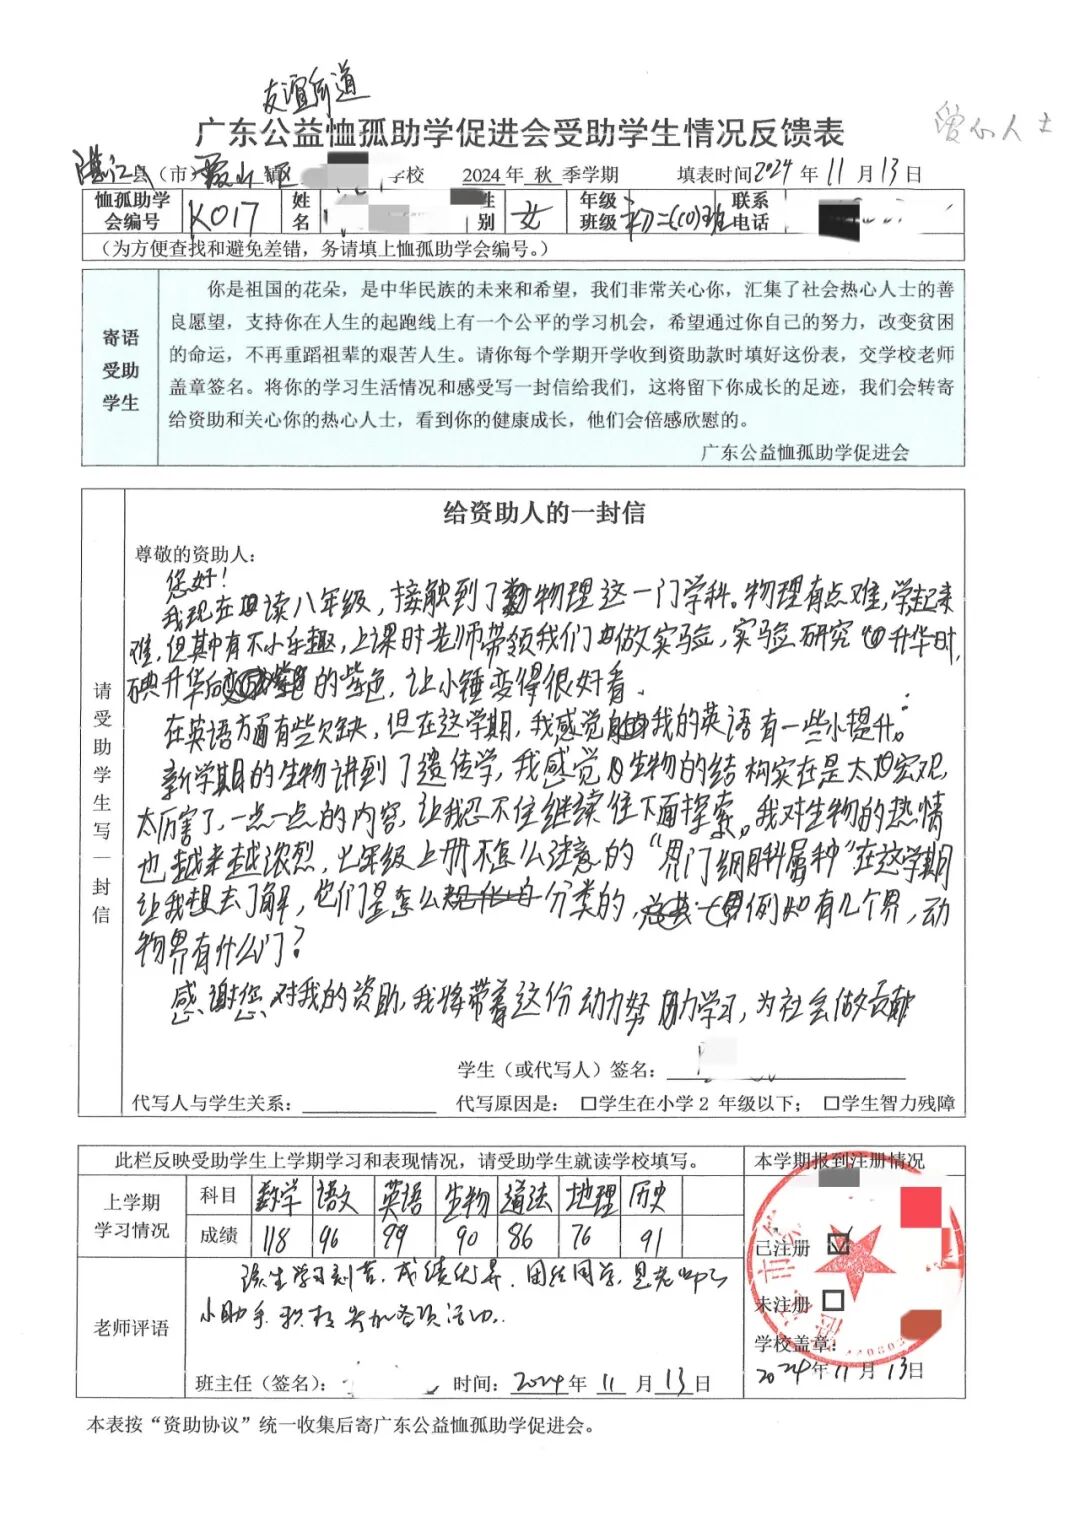 友谊街道
广东公益恤孤助学促进会受助学生情况反馈表
爱心人士
湛江县(市)霞山区镇 学校 2024年 秋 季学期 填表时间2024 年 11 月 13 日
恤孤助学会编号 K017 姓名 性别 女 年级班级 初二(10)班 联系电话
(为方便查找和避免差错,务请填上恤孤助学会编号。)
寄语受助学生
你是祖国的花朵,是中华民族的未来和希望,我们非常关心你,汇集了社会热心人士的善
良愿望,支持你在人生的起跑线上有一个公平的学习机会,希望通过你自己的努力,改变贫困
的命运,不再重蹈祖辈的艰苦人生。请你每个学期开学收到资助款时填好这份表,交学校老师
盖章签名。将你的学习生活情况和感受写一封信给我们,这将留下你成长的足迹,我们会转寄
给资助和关心你的热心人士,看到你的健康成长,他们会倍感欣慰的。
广东公益恤孤助学促进会
请受助学生写一封信
给资助人的一封信
尊敬的资助人:
您好!
我现在读八年级,接触到了物理这一门学科。物理有点难,学起来
难,但其中有不小乐趣,上课时老师带领我们做实验,实验研究升华时,
碘升华后的紫色,让小锤变得很好看。
在英语方面有些欠缺,但在这学期,我感觉我的英语有一些小提升。
新学期的生物讲到了遗传学,我感觉生物的结构实在是太宏观,
太厉害了,一点一点的内容,让我忍不住继续往下面探索。我对生物的热情
也越来越浓烈,七年级上册不怎么注意的“界门纲目科属种”在这学期
让我想去了解,它们是怎么分类的,例如有几个界,动
物界有什么门?
感谢您对我的资助,我将带着这份动力努力学习,为社会做贡献
学生(或代写人)签名:
代写人与学生关系: 代写原因是: □学生在小学2 年级以下; □学生智力残障
此栏反映受助学生上学期学习和表现情况,请受助学生就读学校填写。 本学期报到注册情况
上学期学习情况 科目 数学 语文 英语 生物 道法 地理 历史
成绩 118 96 99 90 86 76 91
已注册 ☑
未注册 □
老师评语
该生学习刻苦,成绩优异,团结同学,是老师的
小助手,积极参加各项活动。
学校盖章:
2024年11月13日
班主任(签名): 时间:2024年 11 月 13 日
本表按“资助协议”统一收集后寄广东公益恤孤助学促进会。